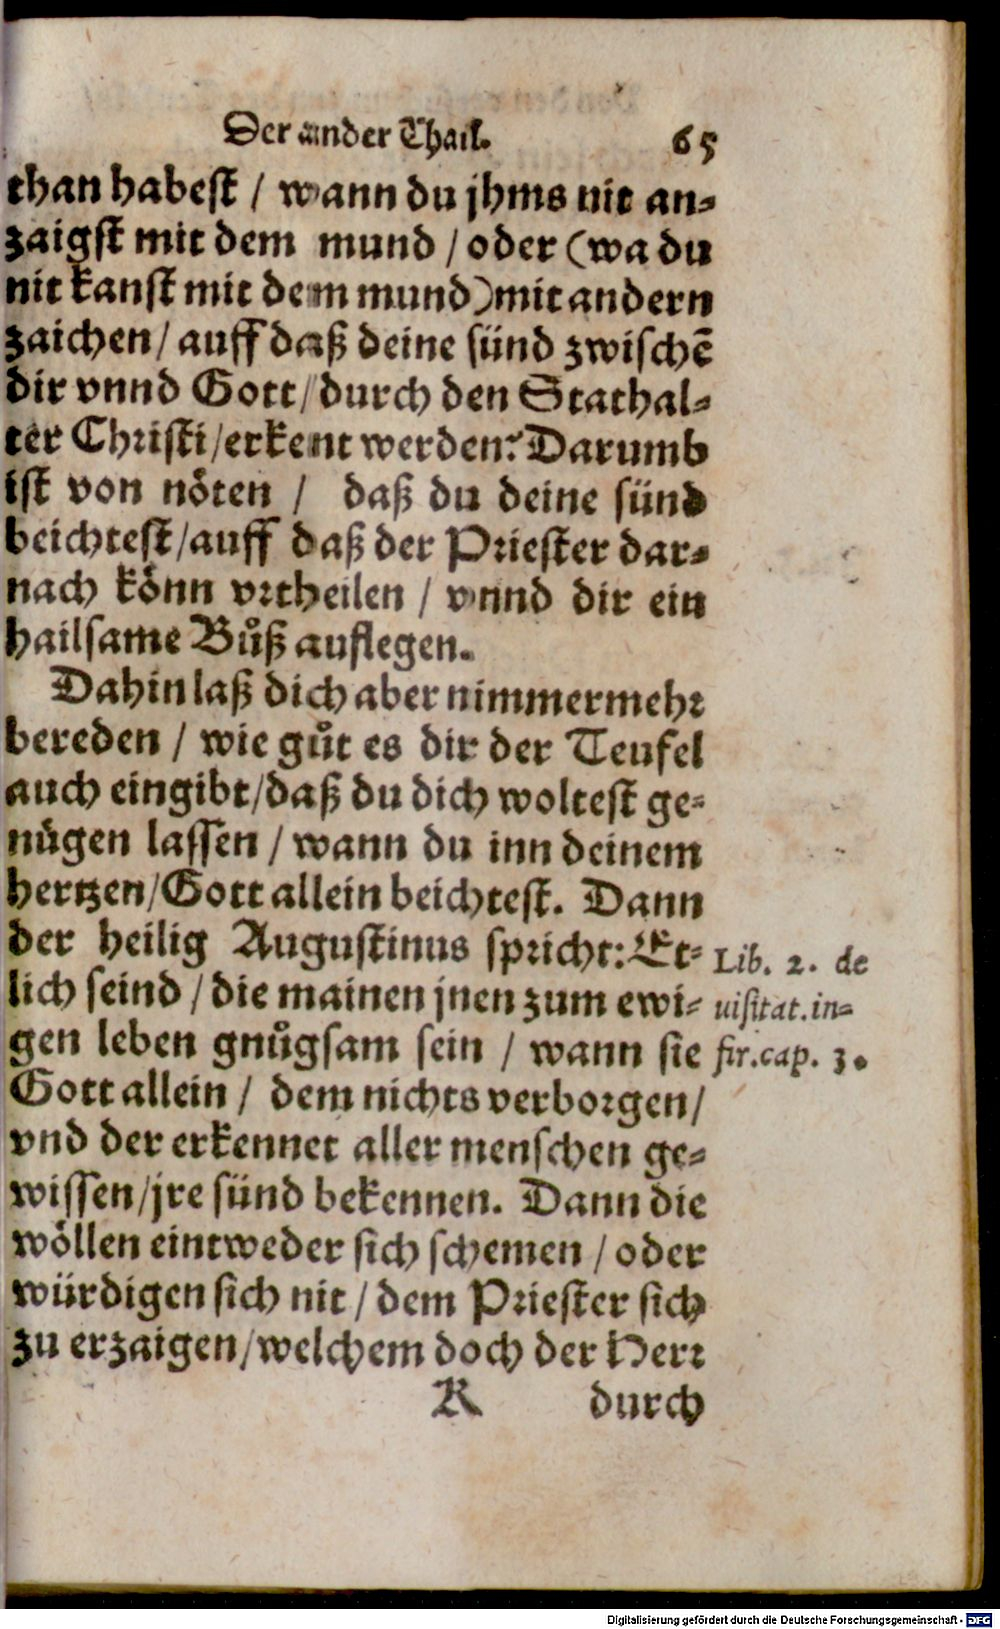 Der ander Thail. 65
than habest / wann du jhms nit an-
zaigst mit dem mund / oder (wa du
nit kanst mit dem mund) mit andern
zaichen / auff daß deine sünd zwischē
dir vnnd Gott / durch den Stathal-
ter Christi / erkent werden? Darumb
ist von nöten / daß du deine sünd
beichtest / auff daß der Priester dar-
nach könn vrtheilen / vnnd dir ein
hailsame Bůß auflegen.
Dahin laß dich aber nimmermehr
bereden / wie gůt es dir der Teufel
auch eingibt / daß du dich woltest ge-
nůgen lassen / wann du inn deinem
hertzen / Gott allein beichtest. Dann
der heilig Augustinus spricht: Et-
lich seind / die mainen jnen zum ewi-
gen leben gnůgsam sein / wann sie
Gott allein / dem nichts verborgen /
vnd der erkennet aller menschen ge-
wissen / jre sünd bekennen. Dann die
wöllen eintweder sich schemen / oder
würdigen sich nit / dem Priester sich
zu erzaigen / welchem doch der Herr
R durch
Lib. 2. de
uisitat. in-
fir. cap. 3.
Digitalisierung gefördert durch die Deutsche Forschungsgemeinschaft - DFG